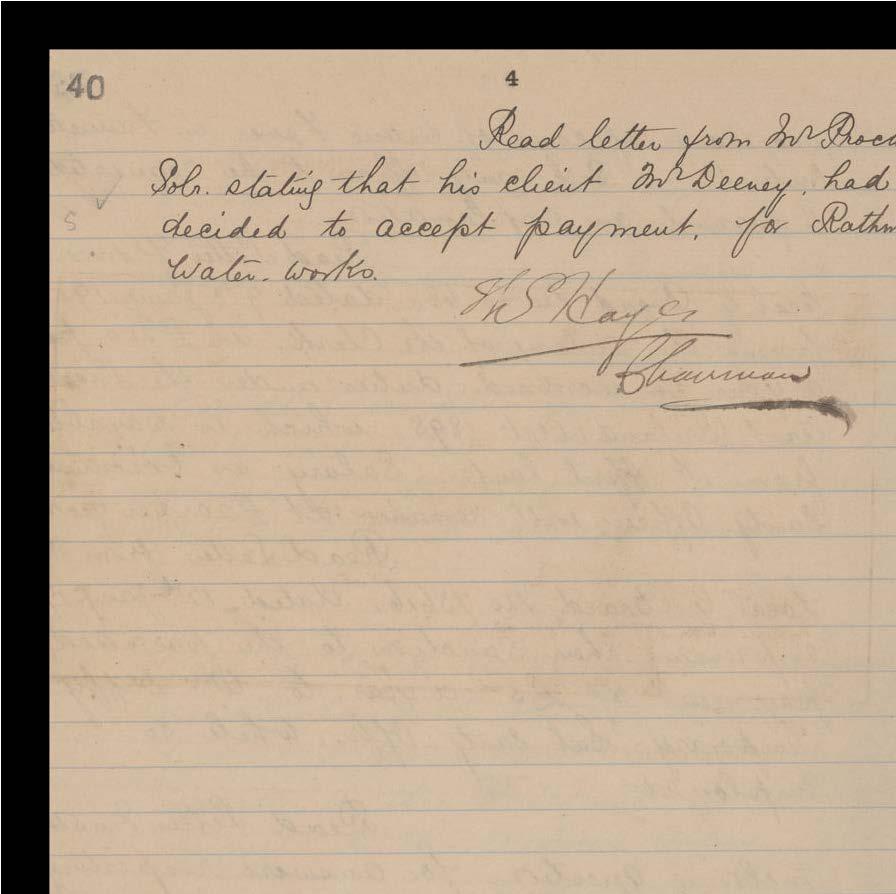 40
4
Read letter from Mr Proc
Solr. stating that his client Mr Deeney, had
5
decided to accept payment, for Rathm
Water-works.
Hayes
Chairman